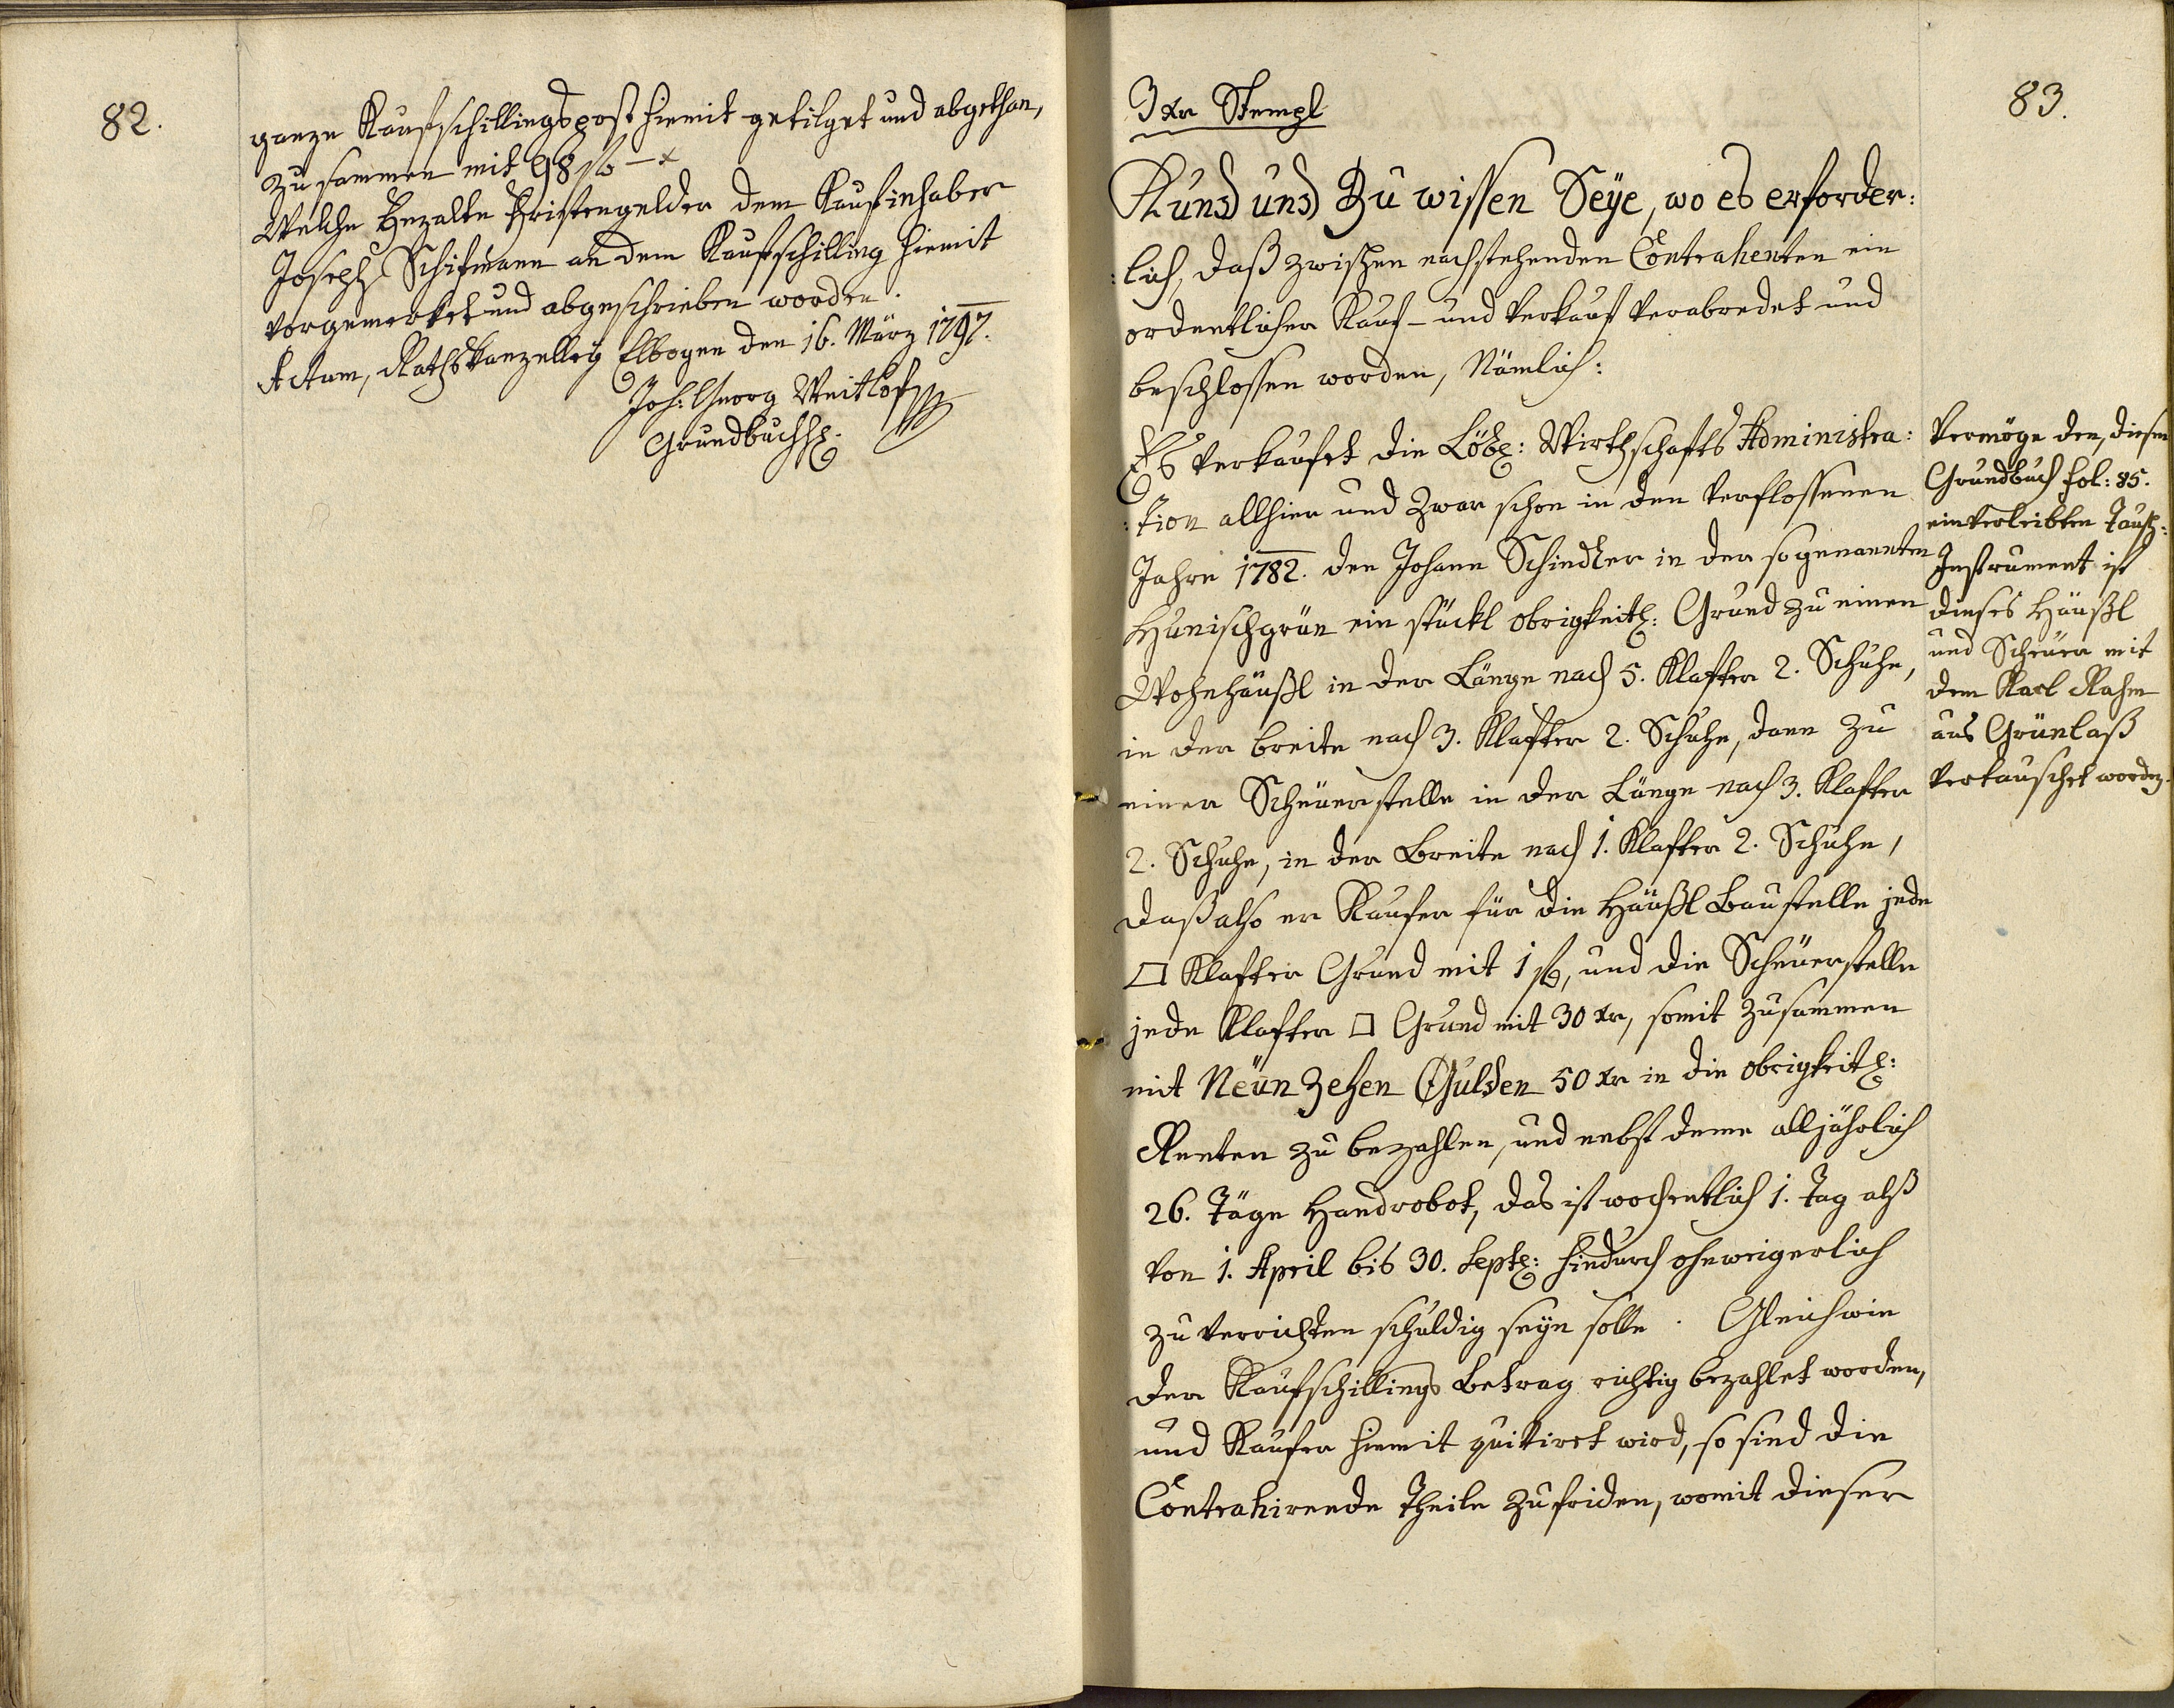 82.
ganze Kaufschillingspost hiemit getilget und abgethan,
zusammen mit 98 f – x
Welche bezalte Fristengelder dem Kaufinhaber
Joseph Schifmann an dem Kaufschilling hiemit
vorgemerket und abgeschrieben worden.
Actum, Rathskanzelley Elbogen den 16. März 1797.
Joh: Georg Weitlof
Grundbuchh:
83.
3 xr Stempl
Kund und Zu wissen Seÿe, wo es erforder:
:lich, daß zwischen nachstehenden Contrahenten ein
ordentlicher Kauf- und Verkauf verabredet und
beschlossen worden, Nämlich:
Es verkaufet die Löbl: Wirthschafts Administra:
:tion allhier und zwar schon in den verflossenen
Jahre 1782. den Johann Schindler in der sogenannten
Hunischgrün ein stückl obrigkeitl: Grund zu einen
Wohnhäußl in der Länge nach 5. Klafter 2. Schuhe,
in der breite nach 3. Klafter 2. Schuhe, dann zu
einer Scheuerstelle in der Länge nach 3. Klafter
2. Schuhe, in der Breite nach 1. Klafter 2. Schuhe,
daß also er Kaufer für die Häußl Baustelle jede
□ Klafter Grund mit 1 f, und die Scheuerstelle
jede Klafter □ Grund mit 30 xr, somit zusammen
mit Neün Zehen Gulden 50 xr in die obrigkeitl:
Renten zu bezahlen, und nebst deme alljährlich
26. Täge Handrobot, das ist wochentlich 1. Tag alß
von 1. April bis 30. Sept: hindurch ohnweigerlich
zu verrichten schuldig seyn solle. Gleichwie
der Kaufschillings Betrag richtig bezahlet worden,
und Kaufer hiemit quitiret wird, so sind die
Contrahirende Theile zufriden, womit dieser
Vermöge den, diesen
Grundbuch fol: 85.
einverleibten Tausch:
Instrument ist
dieses Häußl
und Scheuer mit
dem Karl Rahm
aus Grünlaß
vertauschet worden.